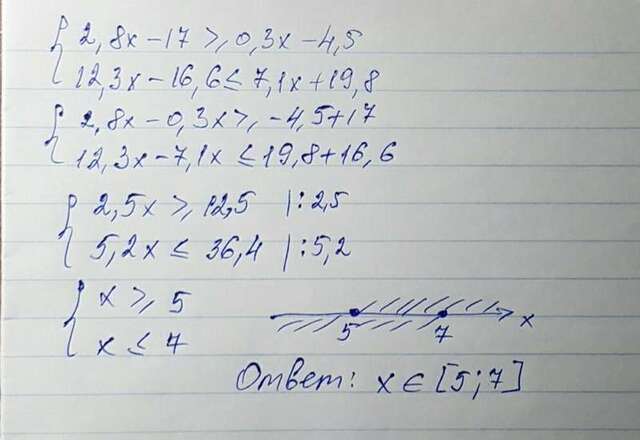 { 2,8x-17 ≥ 0,3x-4,5
12,3x-16,6 ≤ 7,1x+19,8
{ 2,8x-0,3x ≥ -4,5+17
12,3x-7,1x ≤ 19,8+16,6
{ 2,5x ≥ 12,5 |:2,5
5,2x ≤ 36,4 |:5,2
{ x ≥ 5
x ≤ 7
5 7 x
Ответ: x ∈ [5;7]